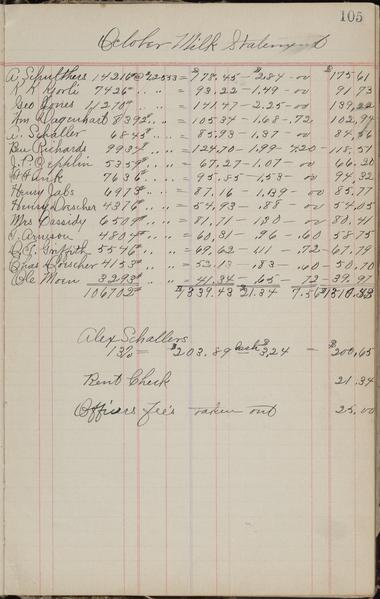 105
October Milk Statement
A Schulthers 14216# @ 1.2553 = $178.45 — $2.84 — 00 $175.61
R K Gorli 7426# " " = 93.22 — 1.49 — 00 91.73
Geo Jones 11270# " " = 141.47 — 2.25 — 00 139.22
Wm Wagenhart 8392# " " = 105.34 — 1.68 — .72 102.94
A. Schaller 6845# " " = 85.93 — 1.37 — 00 84.56
Ben Richards 9934# " " = 124.70 — 1.99 4.20 — 118.51
J. P. Depplin 5359# " " = 67.27 — 1.07 — 00 66.20
H Funk 7636# " " = 95.85 — 1.53 — 00 94.32
Henry Jabs 6943# " " = 87.16 — 1.39 — 00 85.77
Henry Dorscher 4376# " " = 54.93 — .88 — 00 54.05
Mrs Cassidy 6509# " " = 81.71 — 1.30 — 00 80.41
T. Arneson 4804# " " = 60.31 — .96 — .60 58.75
L. F. Griffith 5546# " " = 69.62 — 1.11 — .72 — 67.79
Chas Dorscher 4153# " " = 52.13 — .83 — .60 — 50.70
Ole Moen 3293# " " = 41.34 — .65 — .72 — 39.97
106702# $1339.43 $21.34 7.56 $1310.53
Alex Schallers
1 3% = $203.89 $3.24 — $200.65
Rent Check 21.34
Officers Fee's taken out 25.00